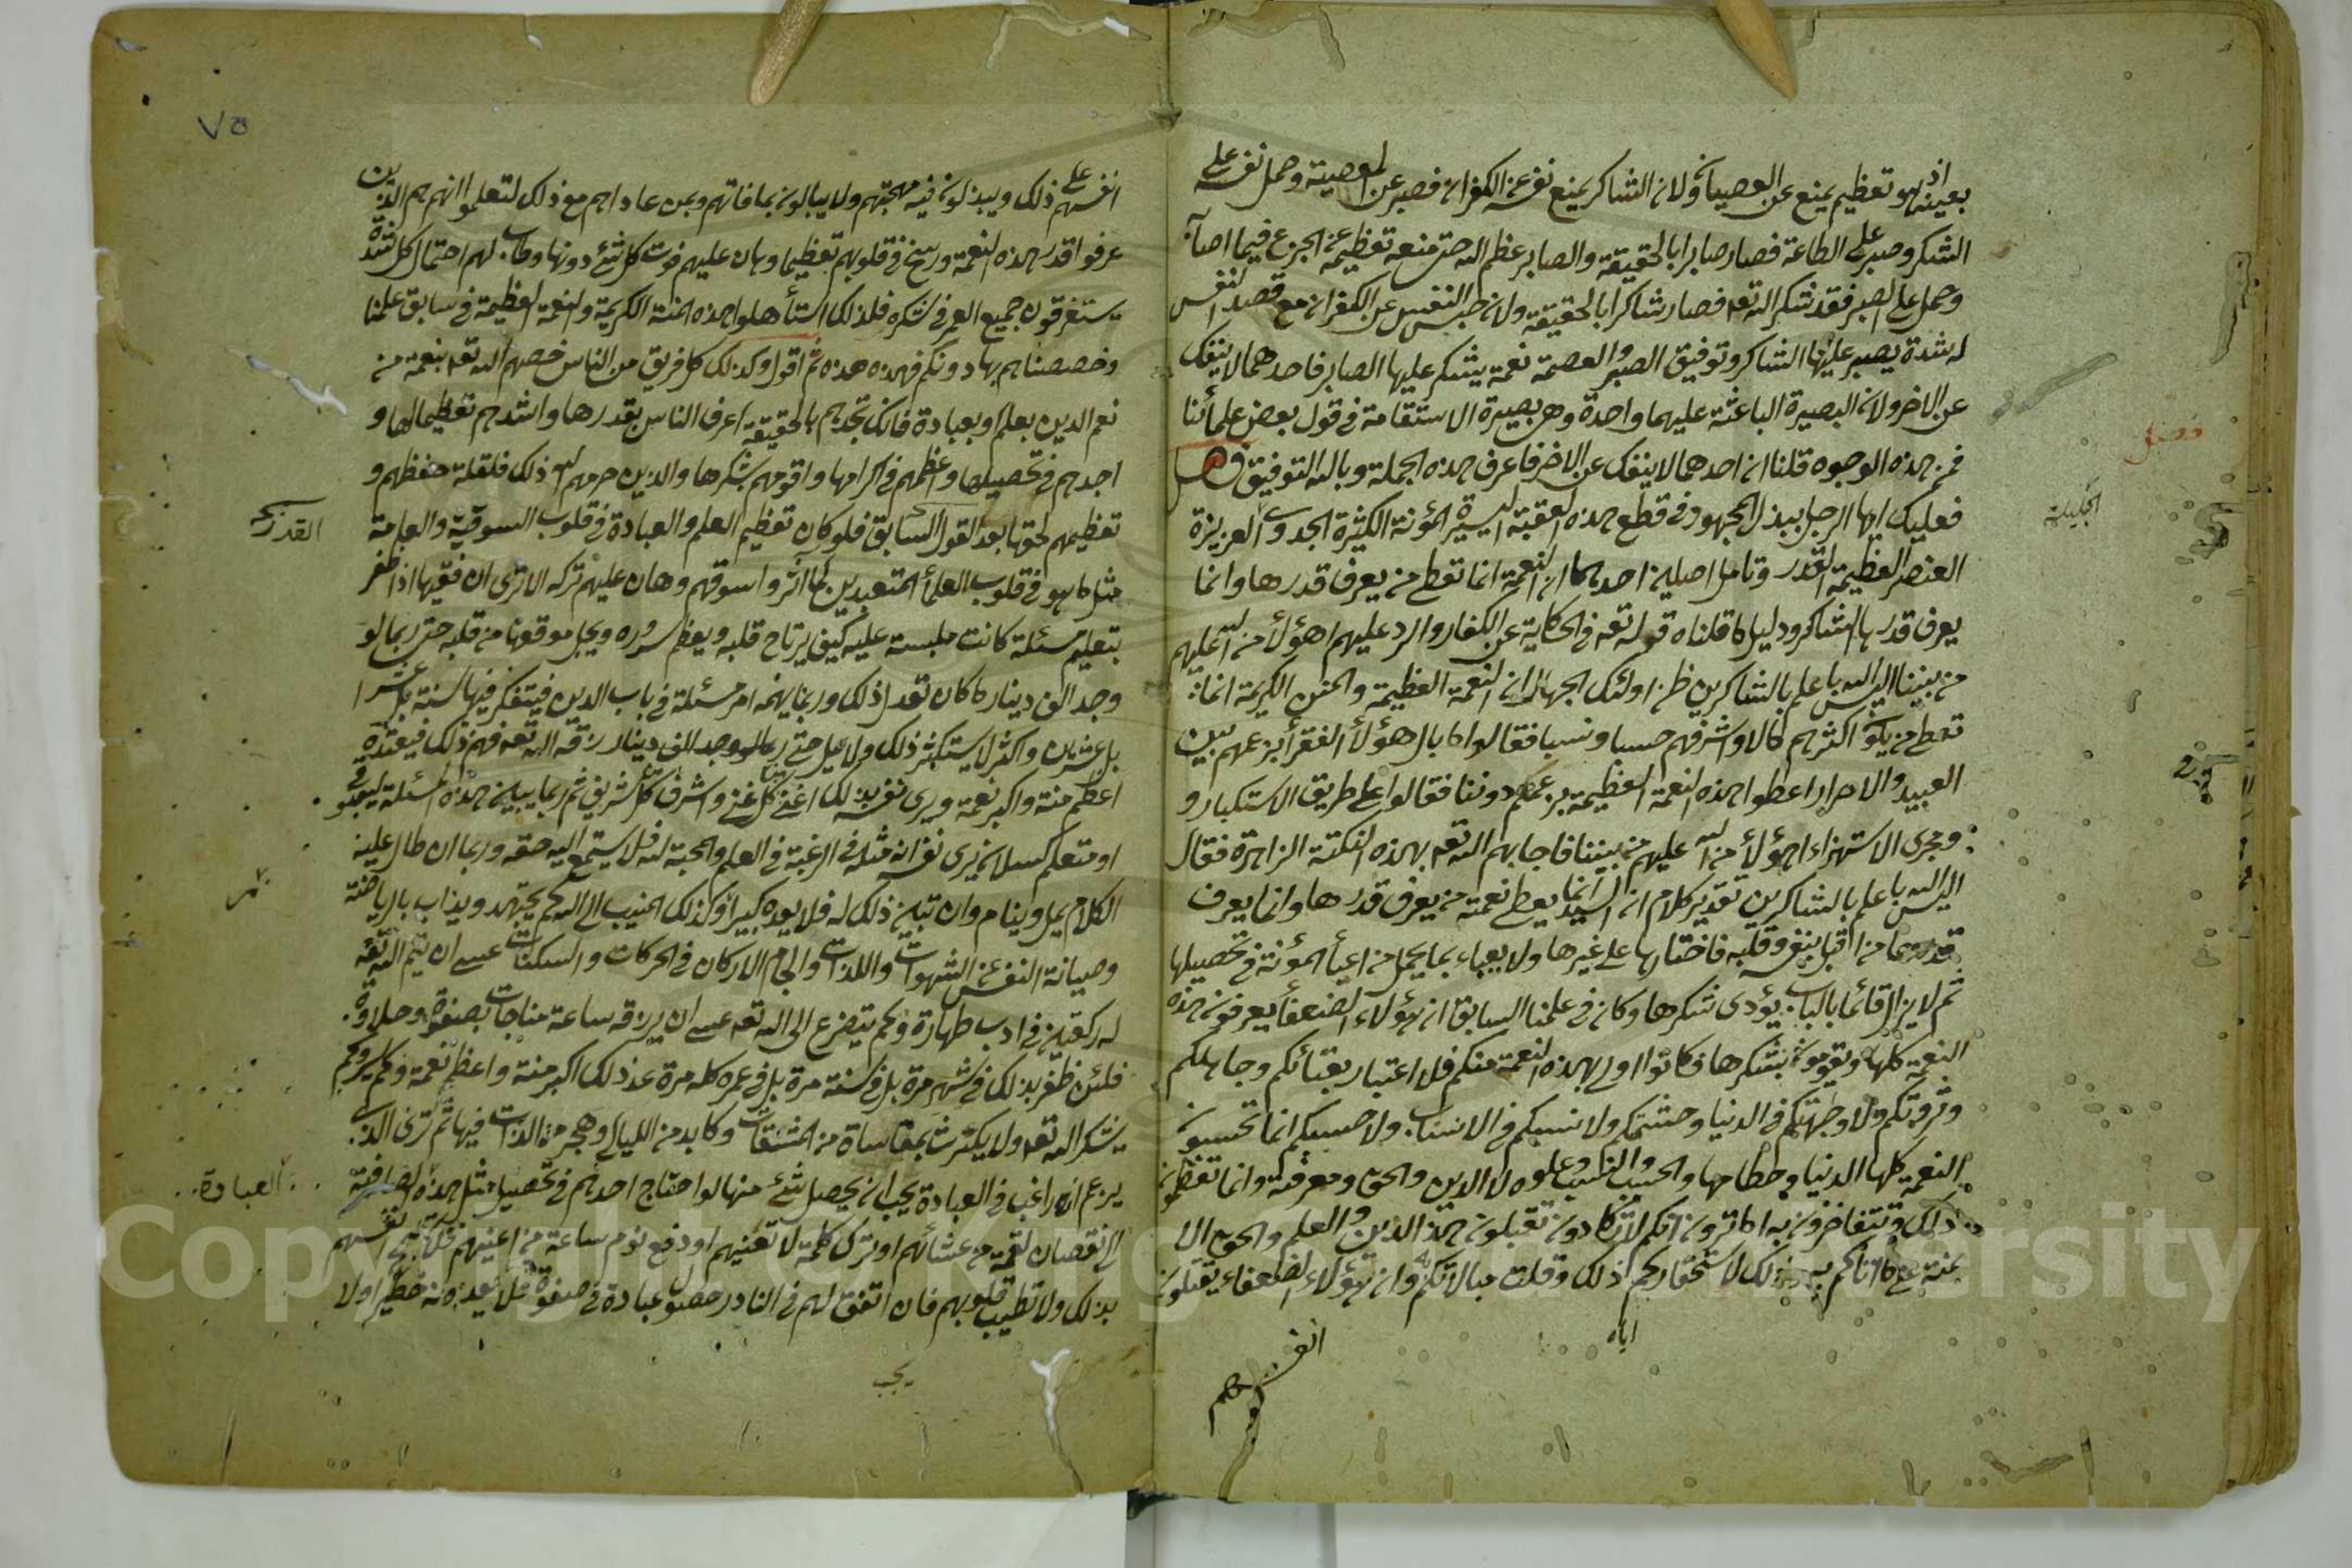 بعينه اذ هو تعظيم يمنع عن العصيان ولان الشاكر يمنع نفسه عن الكفران فصبر عن المعصية وحمل نفسه على
الشكر وصبر على الطاعة فصار صابرا بالحقيقة والصابر عظم الله حتى منعه تعظيمه عن الجزع فيما اصابه
وحمل على الصبر فقد شكر الله تعه فصار شاكرا بالحقيقة ولان حبس النفس عن الكفران مع قصد النفس
له شدة يصبر عليها الشاكر وتوفيق الصبر والعصمة نعمة يشكر عليها الصابر فاحدهما لا ينفك
عن الاخر ولان البصيرة الباعثة عليهما واحدة وهى بصيرة الاستقامة فى قول بعض علمائنا
فمن هذه الوجوه قلنا ان احدهما لا ينفك عن الاخر فاعرف هذه الجملة وبالله التوفيق فصل
فصل
فعليك ايها الرجل ببذل المجهود فى قطع هذه العقبة اليسيرة المؤنة الكثيرة الجدوى العزيزة
الجليلة
العنصر العظيمة القدر وتامل اصلين احدهما ان النعمة انما تعطى من يعرف قدرها وانما
يعرف قدرها الشاكر ودليل ما قلناه قوله تعه فى الحكاية عن الكفار والرد عليهم اهؤلأ من الله عليهم
من بيننا اليس الله باعلم بالشاكرين ظن اولئك الجهال ان النعمة العظيمة والمنن الكريمة انما
تعطى من يكون اكثرهم مالا واشرفهم حسبا ونسبا فقالوا ما بال هؤلأ الفقرأ بزعمهم بين
العبيد والاحرار اعطوا هذه النعمة العظيمة بزعمكم دوننا فقالوا على طريق الاستكبار و
ومجرى الاستهزاء اهؤلأ من الله عليهم من بيننا فاجابهم الله تعه بهذه النكتة الزاهرة فقال
اليس الله باعلم بالشاكرين تقدير كلام ان السيد انما يعطى نعمته من يعرف قدرها وانما يعرف
قدرها من اقبل بنفسه وقلبه فاختارها على غيرها ولا يعباء بما يحمل من اعبأ المؤنة فى تحصيلها
ثم لا يزال قائما بالباب يؤدى شكرها وكان فى علمنا السابق ان هؤلاء الضعفأ يعرفون هذه
النعمة كلها ويقومون بشكرها فكانوا اولى بهذه النعمة منكم فلا اعتبار بغنائكم وجاهكم
وثروتكم ولا وجاهتكم فى الدنيا وحشمتكم ولا نسبكم فى الانساب ولا حسبكم انما تحسبون
النعمة كلها الدنيا وحطامها والحسب والنسب وعلوه لا الدين والحق ومعرفته وانما تعظمون
ذلك وتتفاخرون به اما ترون انكم لا تكادون تقبلون هذا الدين والعلم والحق الا
بمنة على ما اتاكم به وذلك لاستحقاركم ذلك وقلت مبالاتكم وان هؤلاء الضعفاء يقتلون
اياه
انفسهم
٧٥
انفسهم على ذلك ويبذلون فيه مهجتهم ولا يبالون بما فاتهم وبمن عاداهم مع ذلك لتعلموا انهم هم الذين
عرفوا قدر هذه النعمة ورسخ فى قلوبهم تعظيما وهان عليهم فوت كل شئ دونها وطاب لهم احتمال كل شدة
يستغرقون جميع العمر فى شكره فلذلك استأهلوا هذه المنة الكريمة والنعمة العظيمة فى سابق علمنا
وخصصناهم بها دونكم فهذه هذه ثم اقول وكذلك كل فريق من الناس خصهم الله تعه بنعمة من
نعم الدين بعلم او بعبادة فانك تجدهم بالحقيقة اعرف الناس بقدرها واشدهم تعظيما لها و
اجدهم فى تحصيلها واعظمهم فى اكرامها واقومهم بشكرها والذين حرمهم الله ذلك فلقلة حفظهم و
تعظيمهم لحقها بعد القول السابق فلو كان تعظيم العلم والعبادة فى قلوب السوقية والعامة
القدر
مثل ما هو فى قلوب العلمأ المتعبدين لما اثروا سوقهم وهان عليهم تركه الا ترى ان فقيها اذا ظفر
بتعلم مسئلة كانت ملبسة عليه كيف يرتاح قلبه ويعظم سروره ويجل موقعها من قلبه حتى ربما لو
وجد الف دينار ما كان تعدل ذلك وربما يهمه امر مسئلة فى باب الدين فيتفكر فيها سنة بل عشرا
بل عشرين واكثر لا يستكثر ذلك ولا يمل حتى ربما رزقه الله تعه فهم ذلك فيعده
اعظم منة واكبر نعمة ويرى نفسه بذلك اغنى كل غنى واشرف كل شريف ثم ربما يبين هذه المسئلة
او متعلم كسلان يرى نفسه انه مثله فى الرغبة فى العلم والمحبة له فلا يستمع اليه حقه وربما ان طال عليه
الكلام يمل وينام وان تبين ذلك له فلا يعده كبيرا وكذلك المنيب الى الله كم يجتهد ويذاب بالرياضة
وصيانة النفس عن الشهوات واللذات والجام الاركان فى الحركات والسكنات عسى ان يتم الله تعه
له ركعتين فى ادب طهارة وكم يتضرع الى الله تعه عسى ان يرزقه ساعة مناجات بصفوة وحلاوة
فلئن ظفر بذلك فى شهر مرة بل فى سنة مرة بل فى عمره كله مرة عد ذلك اكبر منة واعظم نعمة وكم
يشكر الله تعه ولا يكترث بمقاساة من المشقات وكابد من الليالى وهجر من اللذات فيها ثم ترى الذى
يزعم انه راغب فى العبادة يحب ان يحصل شئ منها لو احتاج احدهم فى تحصيل مثل هذه الصافية
العبادة
الى نقصان لقمة من عشائهم او ترك كلمة لا تعنيهم او دفع نوم ساعة من اعينهم فلا انفسهم
بذلك ولا تطيب قلوبهم فان اتفق لهم فى النادر حصول عبادة فى صفوة فلا يعدونه خطيرا ولا